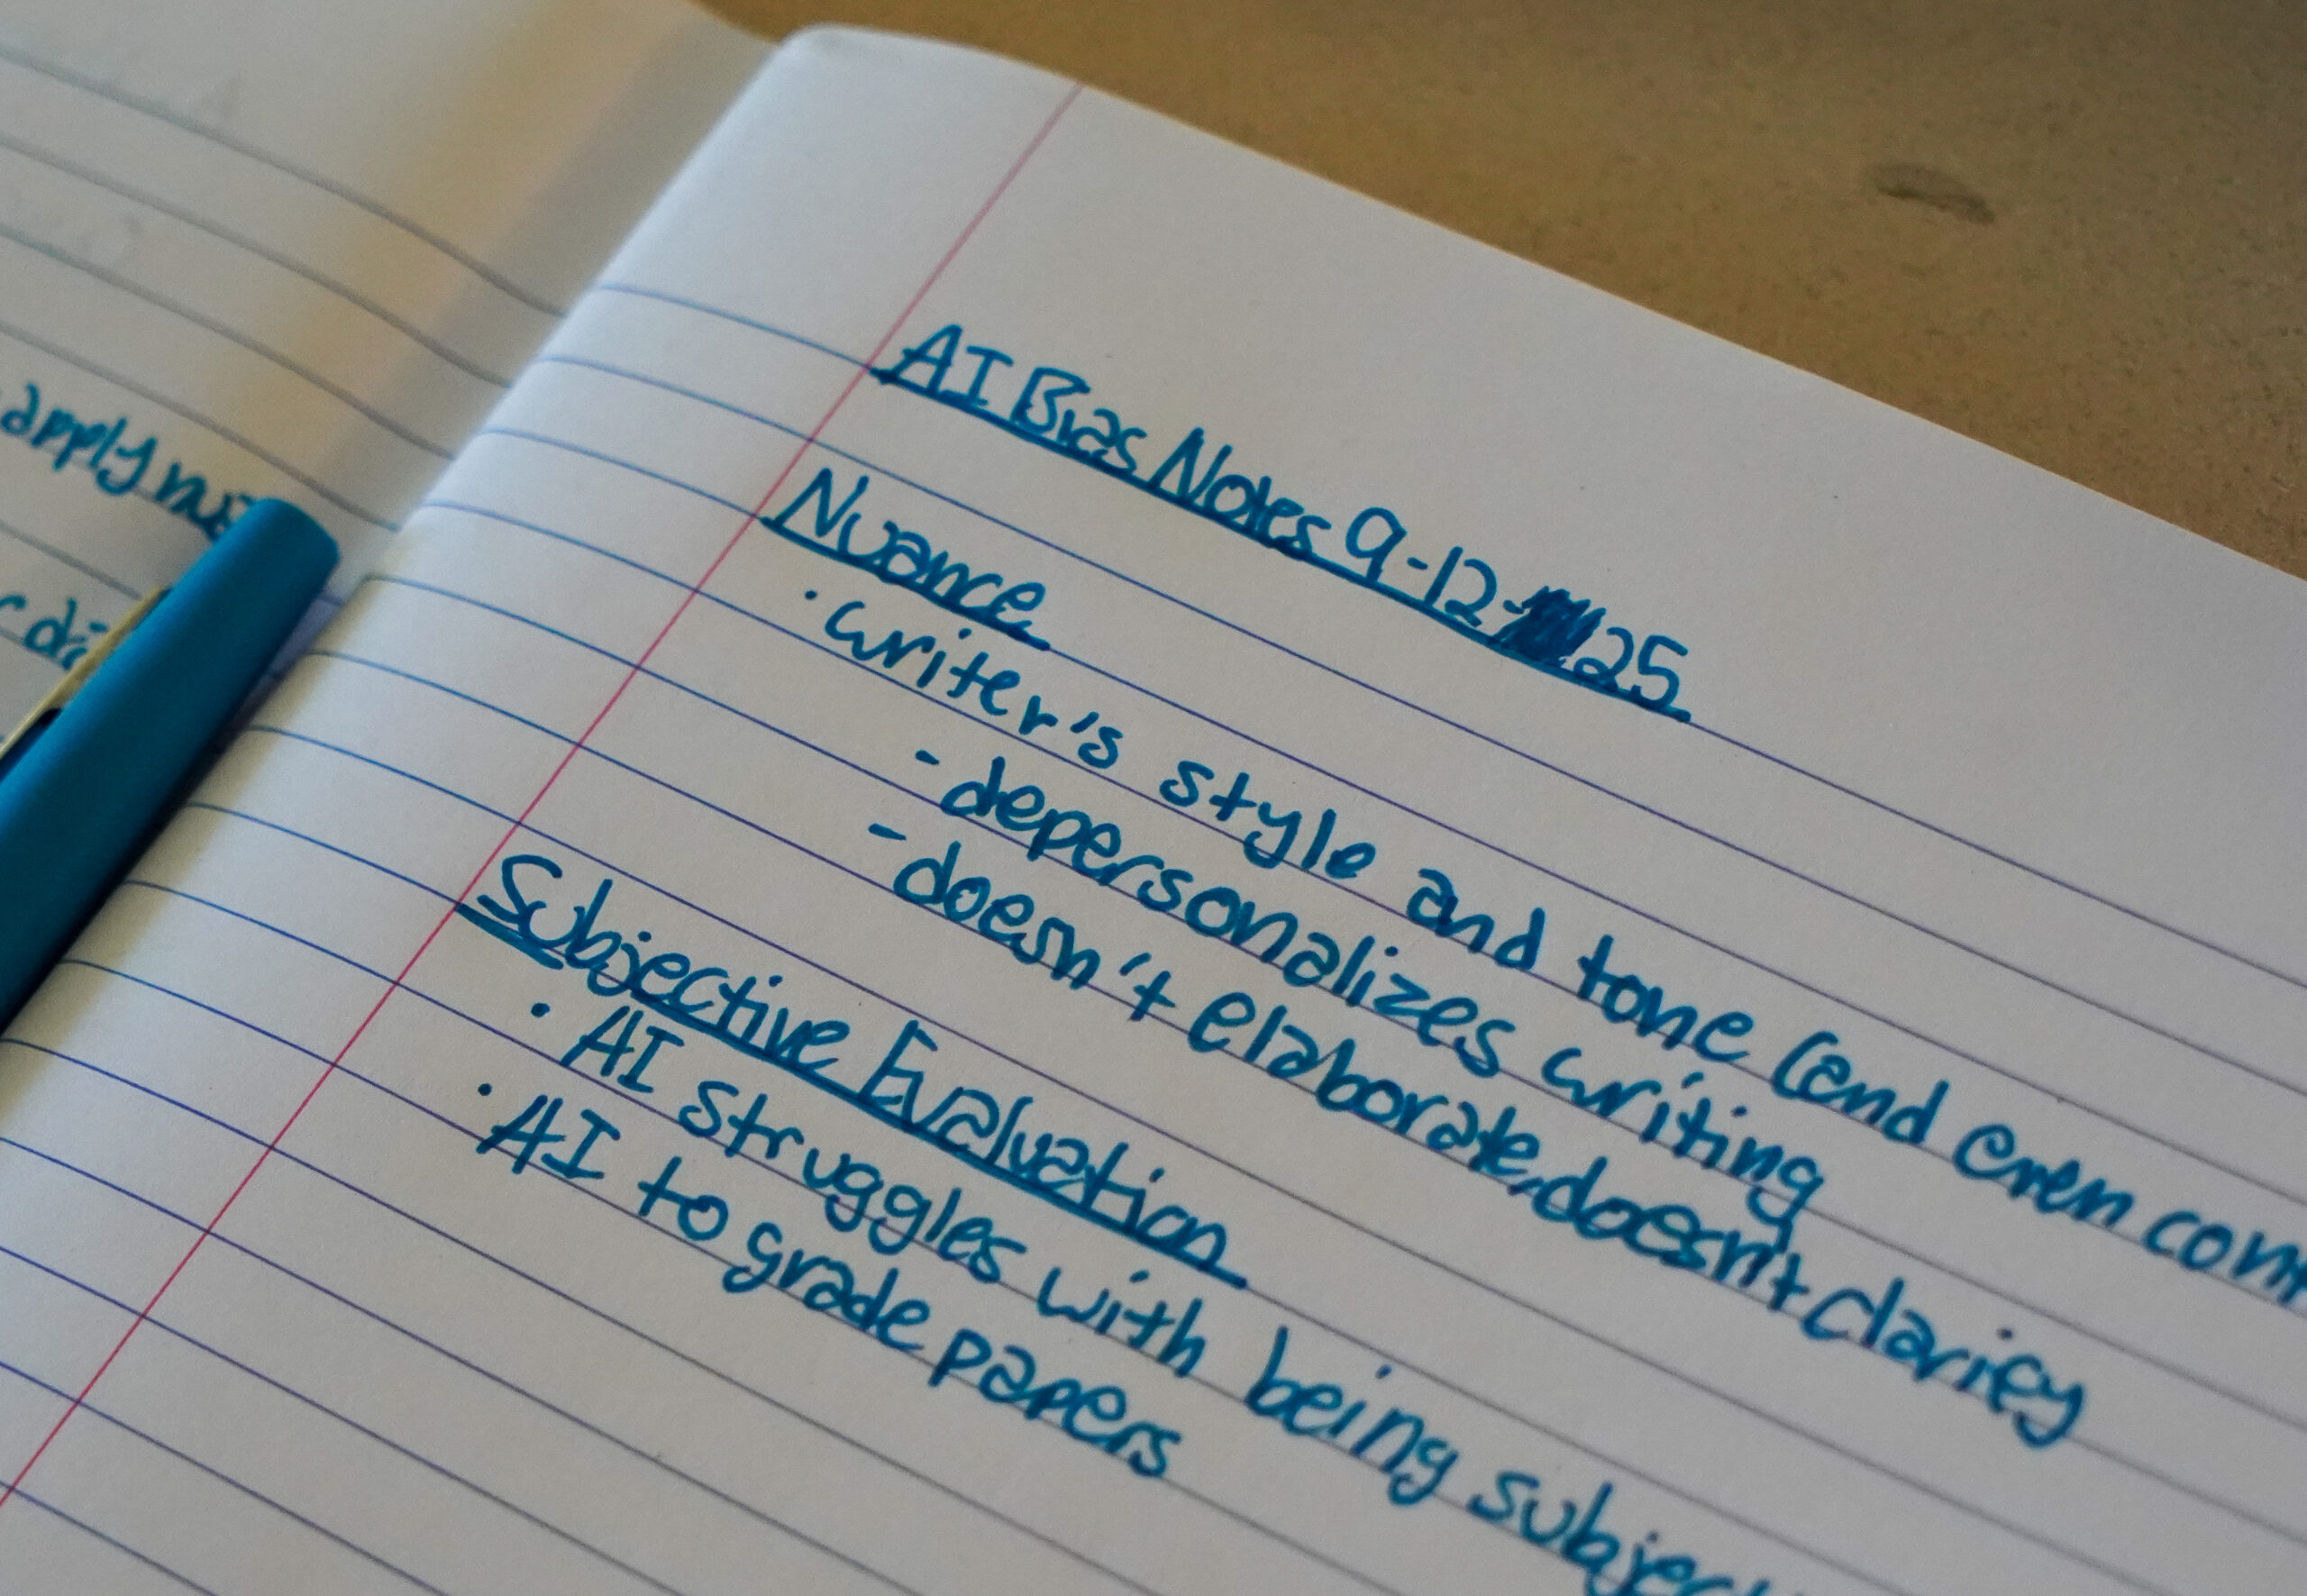 apply
AI Bias Notes 9-12-25
Nuance
· writer's style and tone (and even
- depersonalizes writing
- doesn't elaborate, doesn't clarify
Subjective Evaluation
· AI struggles with being
· AI to grade papers